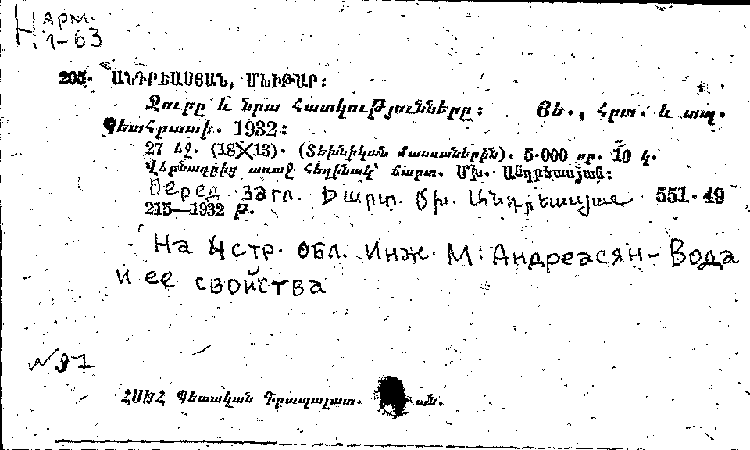 Н арм.
1-63
205. ԱՆԴՐԵԱՍՅԱՆ, ՄԽԻԹԱՐ:
Ջուրը և նրա հատկությունները: Յե., Հրտ. և տպ.
Պետհրատի. 1932:
27 եջ. (18X13). (Տեխնիկան մասսաներին). 5.000 որ. 10 կ.
Վերնագրից առաջ հեղինակ՝ Ճարտ. Մխ. Անդրեասյան:
Перед загл. Ճարտ. Մխ. Անդրեասյան 551.49
215—1932 թ.
На 4 стр. обл. Инж. М. Андреасян - Вода
и ее свойства
N 91
ՀՍԽՀ Պետական Գրապալատ.